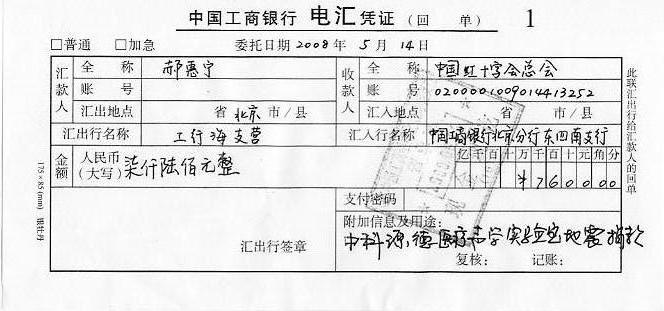 中国工商银行 电汇凭证（回 单） 1
□普通 □加急 委托日期 2008 年 5 月 14 日
汇款人 全 称 郝惠宁 收款人 全 称 中国红十字会总会
账 号 账 号 0200001009014413252
汇出地点 省 北京 市/县 汇入地点 省 市/县
汇出行名称 工行海支营 汇入行名称 中国工商银行北京分行东四南支行
金额 人民币（大写） 柒仟陆佰元整 亿千百十万千百十元角分
¥760000
支付密码
附加信息及用途：
中科源,德医疗声学实验室地震捐款
汇出行签章 复核： 记账：
此联汇出行给汇款人的回单
175×85(mm) 银牡丹